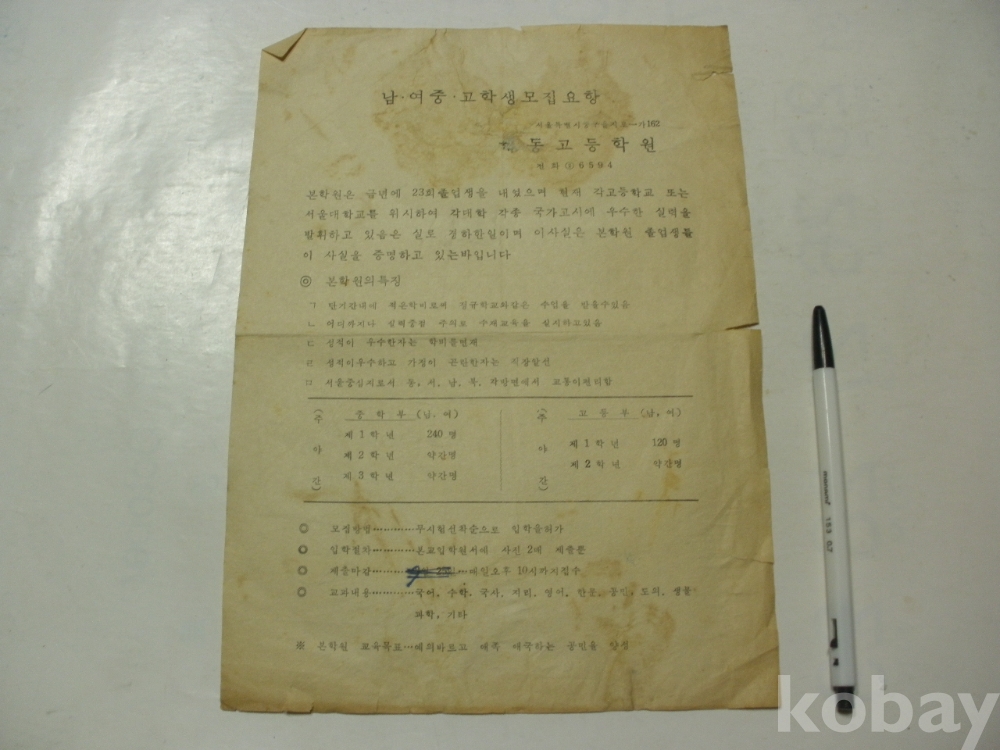 남·여중·고학생모집요항
서울특별시 162
동고등학원
전화 ① 6594
본학원은 금년에 23회졸업생을 내었으며 현재 각고등학교 또는
서울대학교를 위시하여 각대학 각종 국가고시에 우수한 실력을
발휘하고 있음은 실로 경하할일이며 이사실은 본학원 졸업생들
이 사실을 증명하고 있는바입니다
◎ 본학원의특징
ㄱ 단기간내에 적은학비로써 정규학교와같은 수업을 받을수있음
ㄴ 어디까지나 실력중점 주의로 수재교육을 실시하고있음
ㄷ 성적이 우수한자는 학비를면제
ㄹ 성적이우수하고 가정이 곤란한자는 직장알선
ㅁ 서울중심지로서 동, 서, 남, 북, 각방면에서 교통이편리함
(주야간) 중학부 (남, 여)
제1학년 240명
제2학년 약간명
제3학년 약간명
(주야간) 고등부 (남, 여)
제1학년 120명
제2학년 약간명
◎ 모집방법…………무시험선착순으로 입학을허가
◎ 입학절차…………본교입학원서에 사진 2매 제출
◎ 제출마감…………매일오후 10시까지접수
◎ 교과내용…………국어, 수학, 국사, 지리, 영어, 한문, 공민, 도의, 생물
과학, 기타
※ 본학원 교육목표…예의바르고 애족 애국하는 공민을 양성
monami 153 0.7
kobay